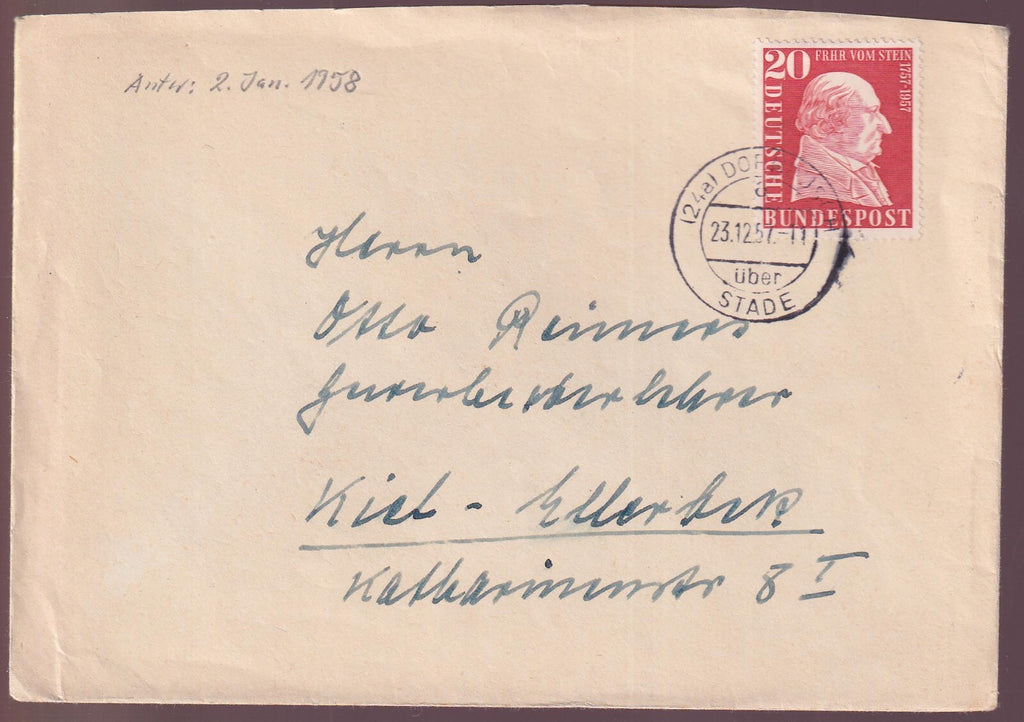 Antw: 2. Jan. 1958
20
FRHR VOM STEIN
1757-1957
DEUTSCHE
BUNDESPOST
(24a)
a
23.12.57.-11
über
STADE
Herrn
Otto Reimers
Gewerbeoberlehrer
Kiel-Ellerbek
Katharinenstr 8 I